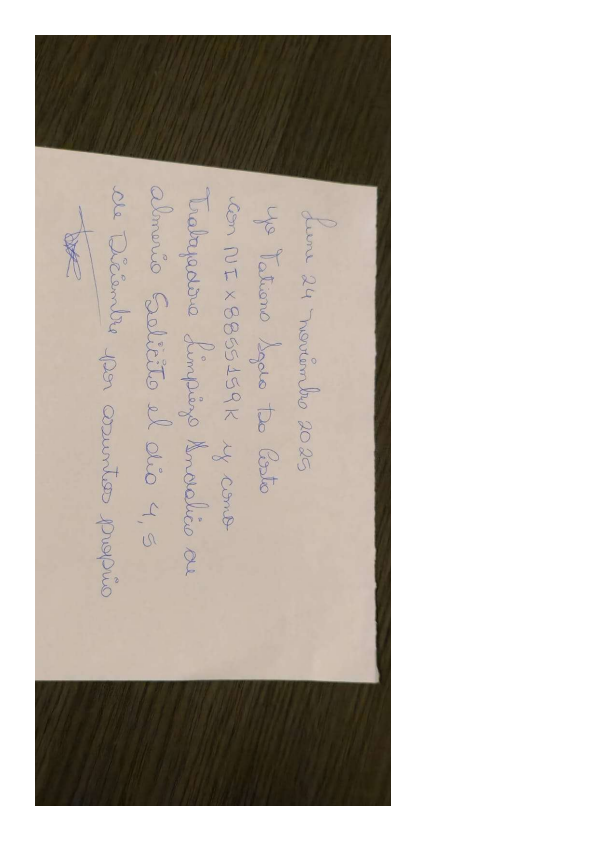 Lune 24 noviembro 2025
yo Tatiana Sgdo Da Costa
con NIX8855159K y como
Trabajadora Limpieza Andalicia de
almeria Solicito el dia 4, 5
de Diciembre por asuntos proprio